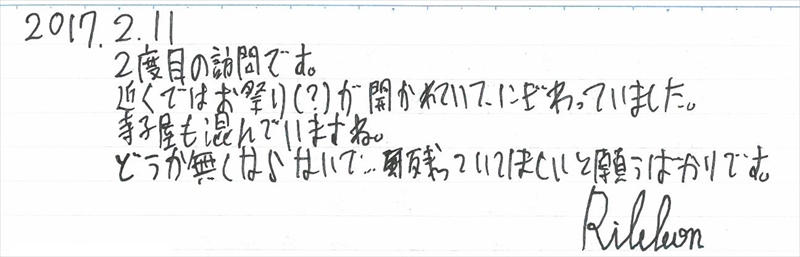 2017.2.11
2度目の訪問です。
近くではお祭り(?)が開かれていて、にぎわっていました。
寺子屋も混んでいますね。
どうか無くならないで…残っていてほしいと願うばかりです。